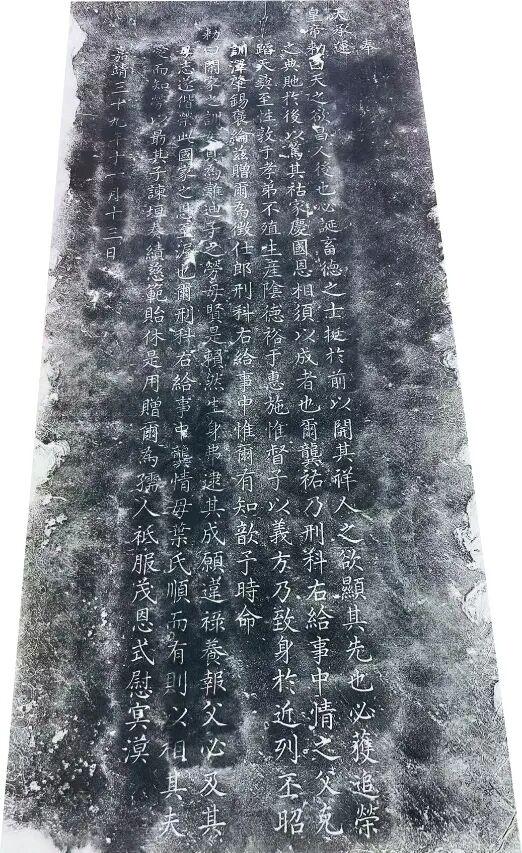 奉
天承運
皇帝勅曰天之欲昌人後也必誕畜德之士挺於前以開其祥人之欲顯其先也必獲追榮
之典貤於後以篤其祜家慶國恩相須以成者也爾龔祐乃刑科右給事中情之父克
蹈天彝至性敦于孝弟不殖生産陰德裕于惠施惟督子以義方乃致身於近列丕昭
訓澤肇錫褒綸茲贈爾為徵仕郎刑科右給事中惟爾有知歆予時命
勅曰閑家之訓女貞為難迪子之勞母賢是賴然生身弗逮其成願違祿養報父必及其
母志遂偕榮此國家之恩至渥也爾刑科右給事中龔情母葉氏順而有則以相其夫
慈而知勞以勗其子諫垣奏績慈範貽休是用贈爾為孺人祇服茂恩式慰冥漠
嘉靖三十九年十一月十三日